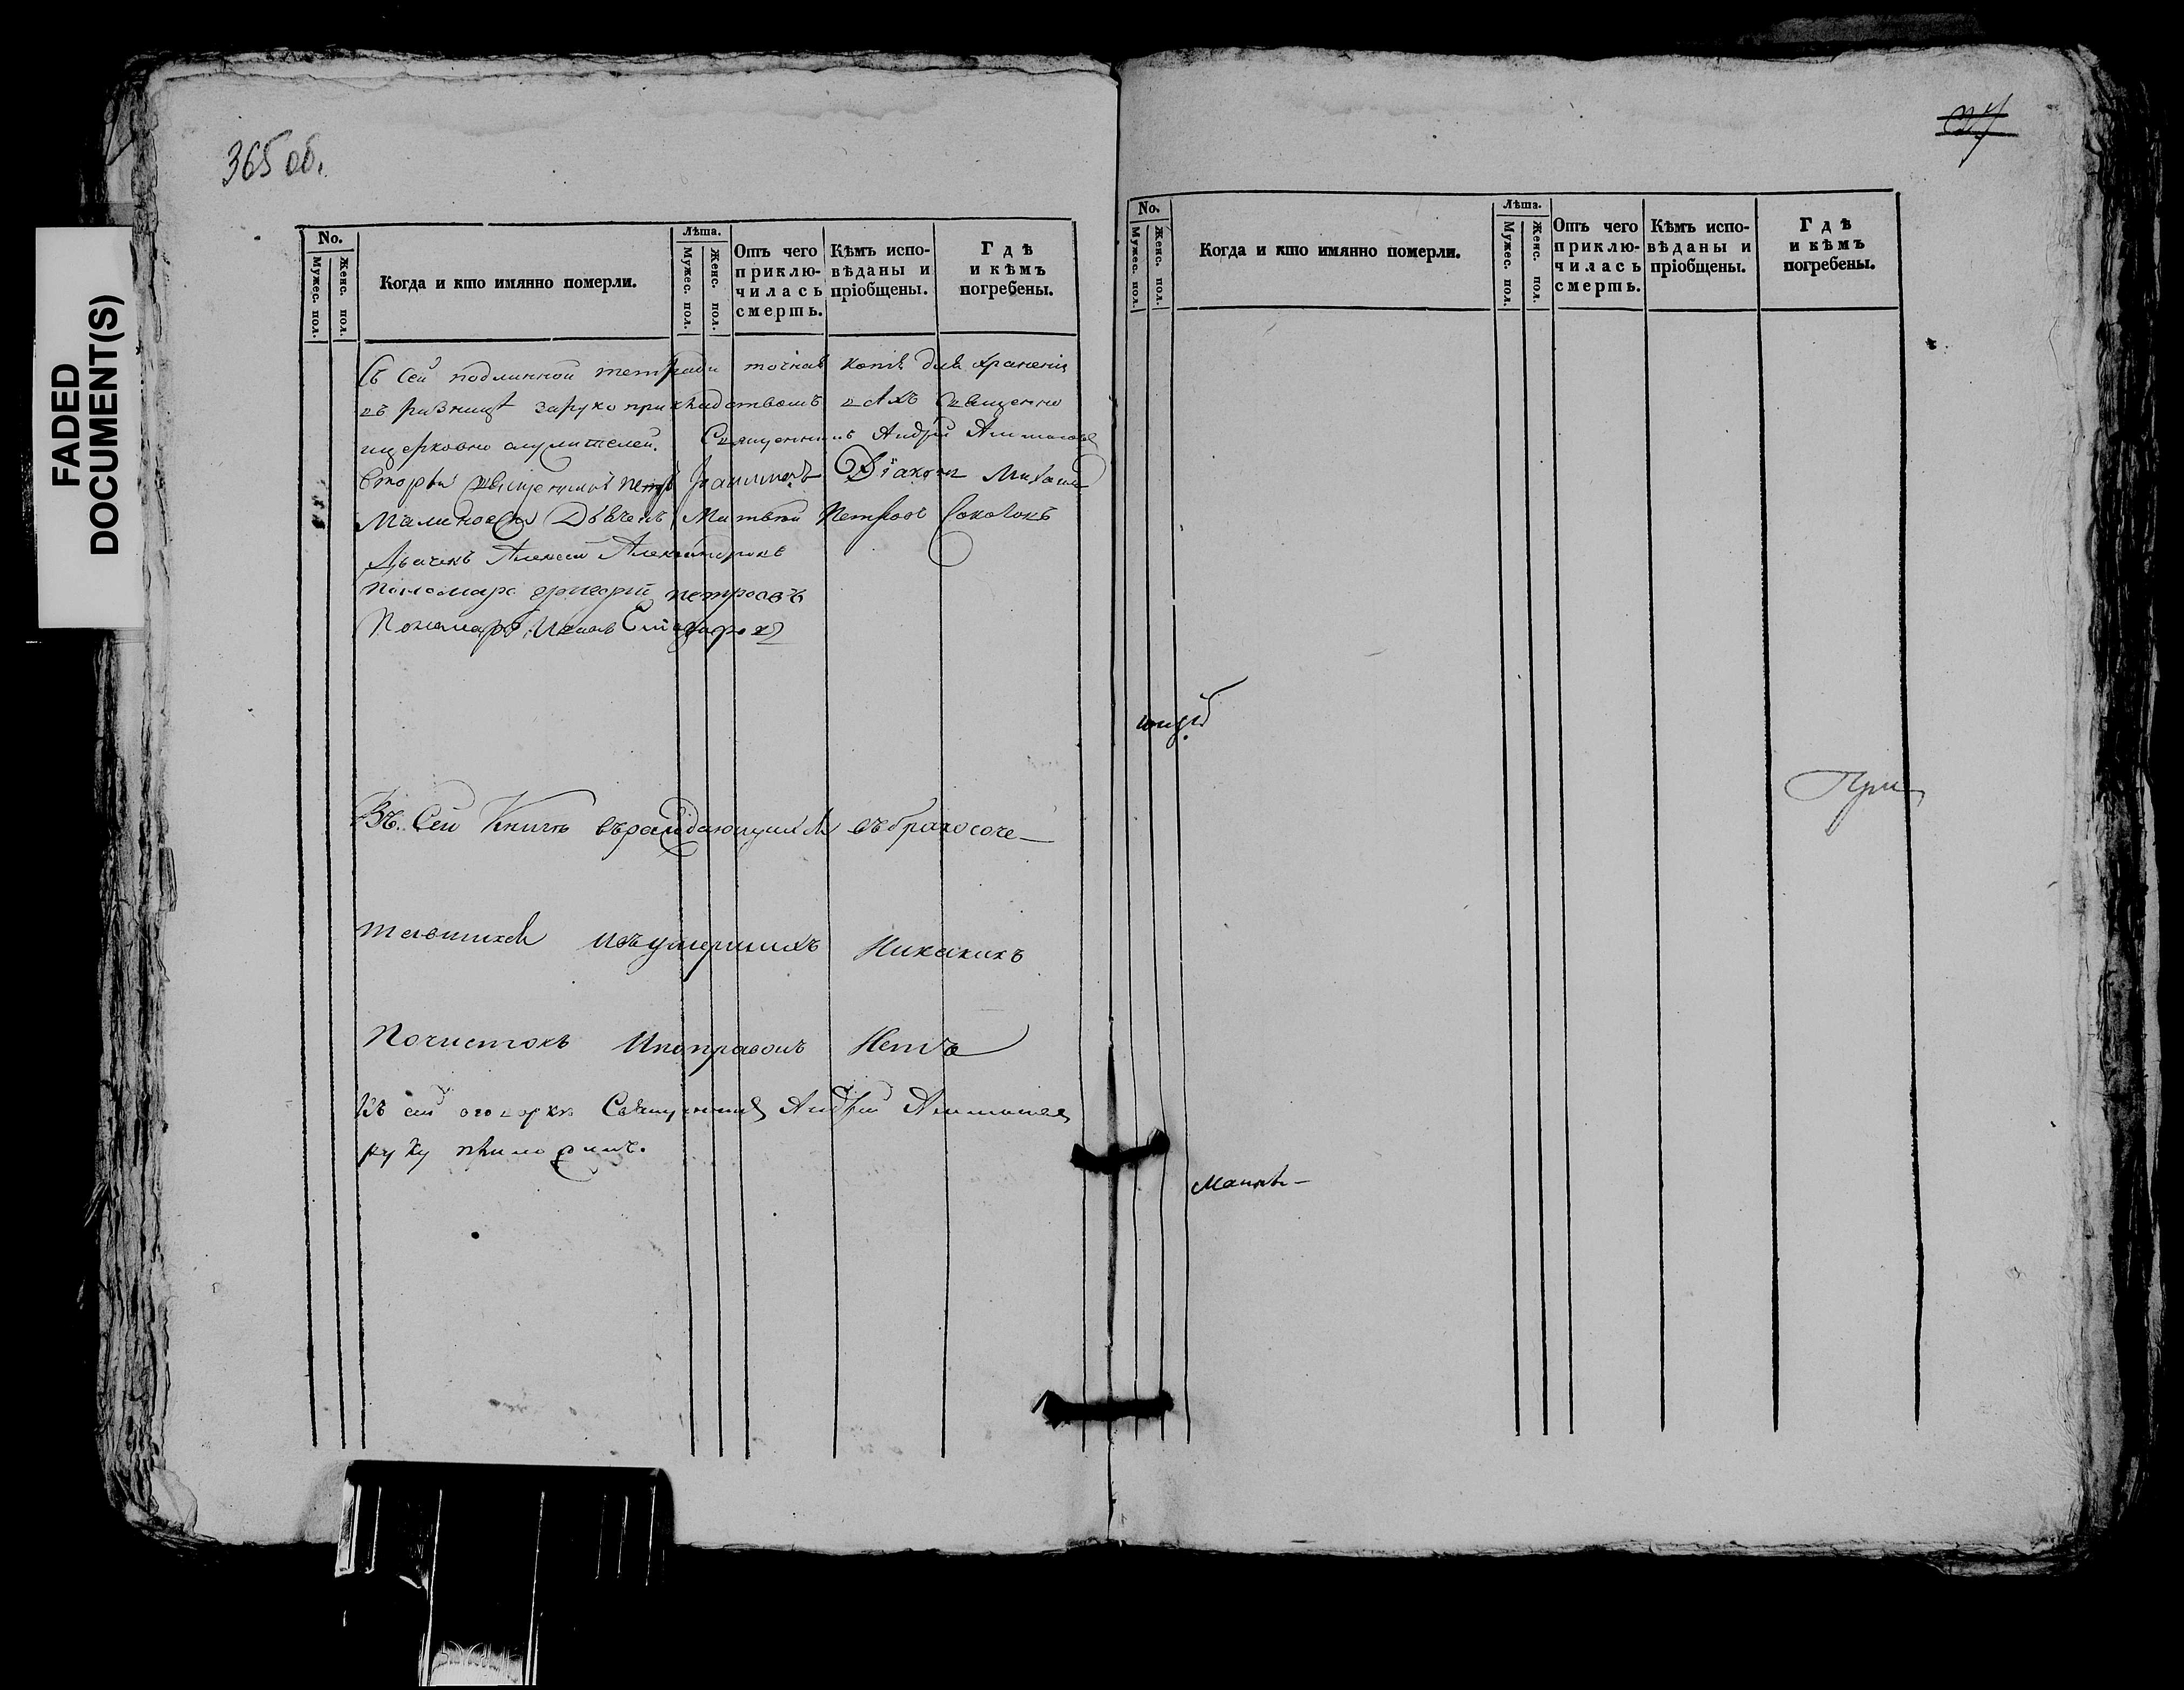 FADED
DOCUMENT(S)
365 об.
No.
Мужес. пол.
Женс. пол.
Когда и кто имянно померли.
Лѣта.
Мужес. пол.
Женс. пол.
Отъ чего приклю-
чилась
смерть.
Кѣмъ испо-
вѣданы и
пріобщены.
Гдѣ
и кѣмъ
погребены.
Съ сей подлинной тетради точная копія для храненія
въ ризницѣ за рукоприкладствомъ всѣхъ священно
и церковно служителей. Священникъ Андрей
вторый священникъ Петръ Іоанновъ Діаконъ Михаилъ
Малиновскій Дьячекъ Матвей Петровъ Соколовъ
Дьячекъ Алексей Александровъ
Пономарь Григорій Петровъ
Пономарь Иванъ
Въ Сей Книге въраждающихся въбракосоче-
тавшихся ивъумершихъ Никакихъ
Почистокъ Ипоправокъ Нетъ
Къ сей оговорке Священникъ Андрей
руку приложилъ.
No.
Мужес. пол.
Женс. пол.
Когда и кто имянно померли.
Лѣта.
Мужес. пол.
Женс. пол.
Отъ чего
приклю-
чилась
смерть.
Кѣмъ испо-
вѣданы и
пріобщены.
Гдѣ
и кѣмъ
погребены.
При